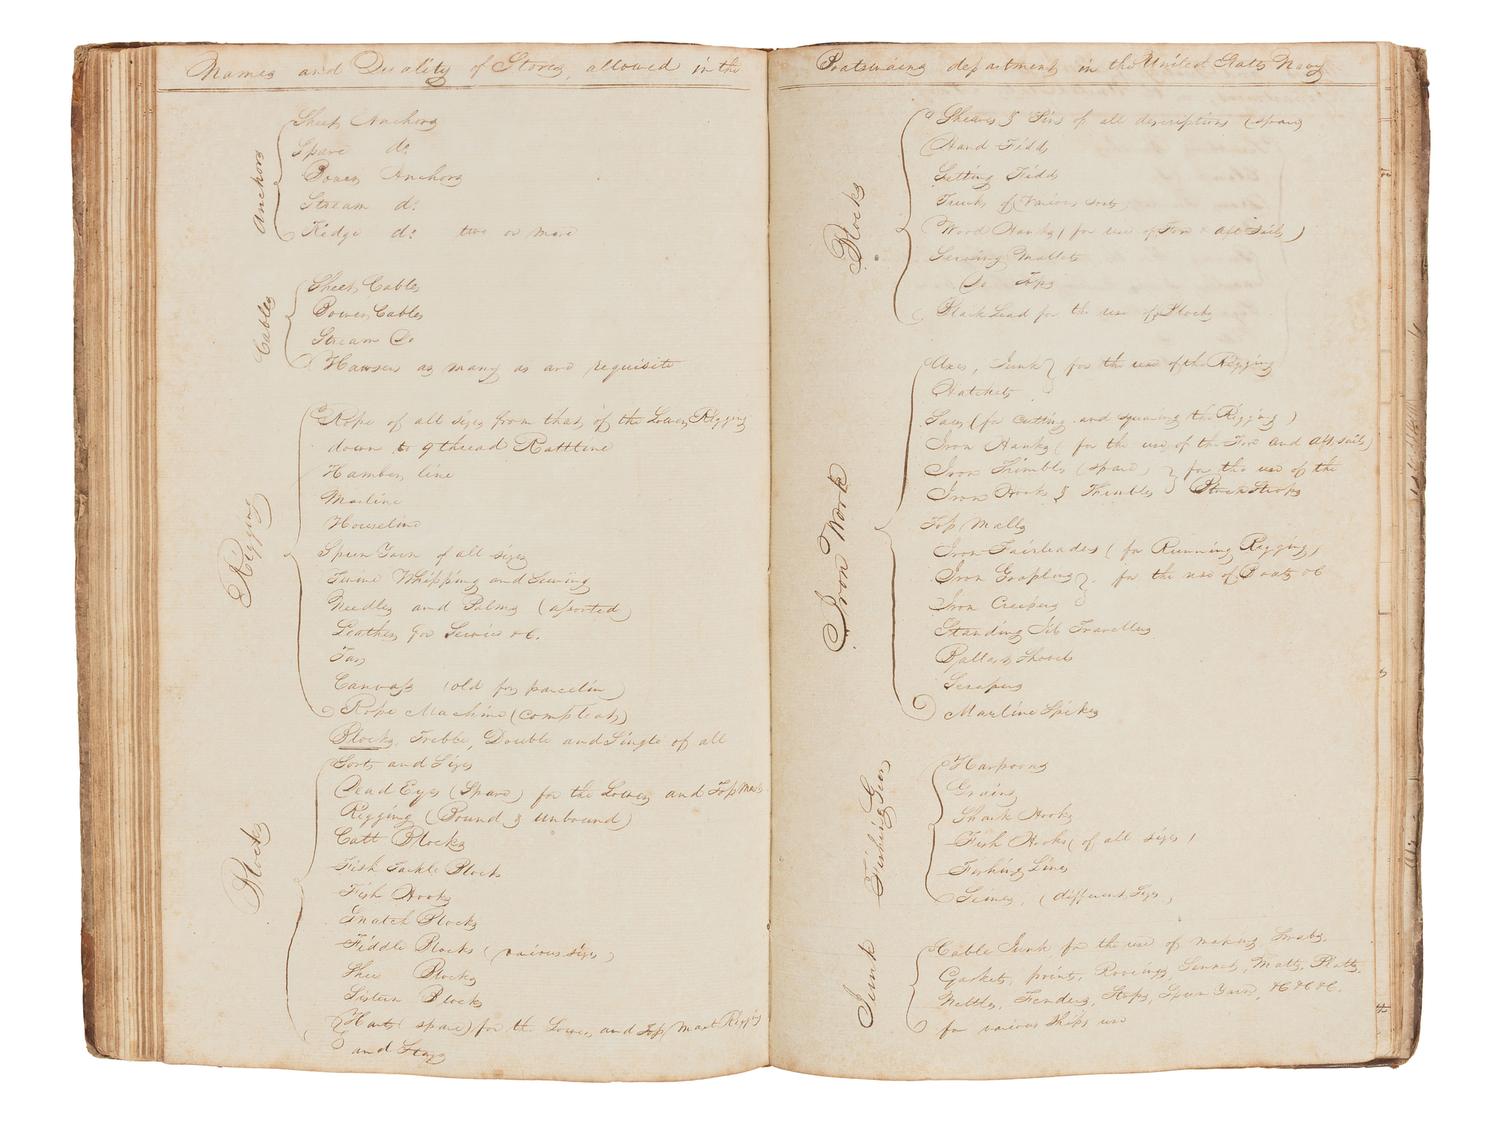 Names and Quality of Stores, allowed in the
Anchors
Sheet Anchors
Spare do
Bower Anchors
Stream do
Kedge do two or more
Cables
Sheet Cables
Bower Cables
Stream Do
Hawsers as many as are requisite
Rigging
Rope of all sizes from that of the Lower Rigging
down to 9 thread Rattline
Hamber line
Marline
Houseline
Spun Yarn of all sizes
Twine Whipping and Sewing
Needles and Palms (assorted)
Leather for Service &c.
Tar
Canvass (old for parcelin)
Rope Machine (compleat)
Blocks
Blocks, Trebbe, Double and Single of all
Sorts and Sizes
Dead Eyes (Spare) for the Lower and Top Mast
Rigging (Bound & unbound)
Catt Blocks
Fish Tackle Block
Fish Hooks
Snatch Blocks
Fiddle Blocks (various sizes)
Shoe Blocks
Sistern Blocks
Harts (spare) for the Lower and Top Mast Rigging
and Stays
Boatswains department in the United States Navy
Blocks
Sheaves & Pins of all descriptions (spare)
Hand Fidds
Setting Fidds
of various sorts
Wood Hanks (for use of Fore & aft Sails)
Serving Mallets
Do Tops
Black Lead for the use of Blocks
Iron Work
Axes, Junk } for the use of the Rigging
Hatchets
Saws (for cutting and squaring the Rigging)
Iron Hanks (for the use of the Fore and aft sails)
Iron Thimbles (spare) } for the use of the
Iron Hooks & Thimbles } Block Strops
Top Malls
Iron Fairleades (for Running Rigging)
Iron Graplins } for the use of Boats &c
Iron Creepers
Standing Jib Travellers
Ballast Shovels
Scrapers
Marline Spikes
Fishing Gear
Harpoons
Grains
Shark Hooks
Fish Hooks (of all sizes)
Fishing Lines
Seines, (different Sizes)
Junk
Cable Junk for the use of making Swabs,
Gaskets, points, Roovings, Sennet, Matts, Platts,
Nettles, Fenders, Stops, Spun Yarn, &c &c &c.
for various Ships use